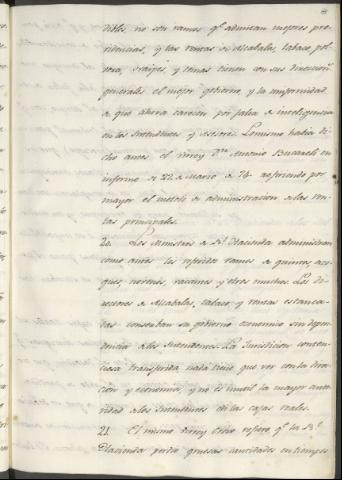 8
dibles no son ramos qe admitan mejores pro
videncias, y las rentas de alcabalas, tabaco, pol
vora, naipes, y demas tienen con sus direccions
generales el mejor gobierno y la uniformidad
de que ahora carecen por falta de inteligencia
en los Intendentes y Asesores. Lo mismo habia di
cho antes el virrey Dn Antonio Bucareli en
informe de 22 de Marzo de 74 refiriendo por
mayor el metodo de administracion de las ren
tas principales.
20. Los Ministros de Rl Hacienda administran
como antes los referidos ramos de quintos, azo
gues, novenos, vacantes y otros muchos. Los di
rectores de Alcabalas, tabaco y rentas estanca
das conservan su gobierno economico sin depen
dencia de los Intendentes. La Jurisdicion conten
ciosa transferida nada tiene que ver con la direc
cion y economia, y no es inutil la mayor auto
ridad de los Intendentes en las cajas reales.
21. El mismo virrey Croix refiere qe la Rl
Hacienda perdia gruesas cantidades en tiempos